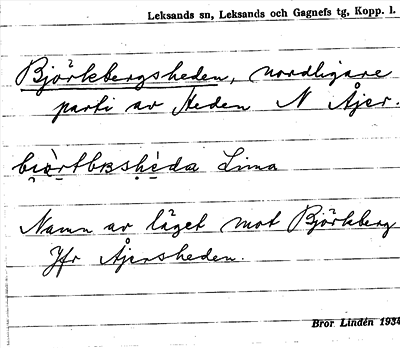 Leksands sn, Leksands och Gagnefs tg, Kopp. l.
Björkbergsheden, nordligare
parti av Heden N Åjer.
Lima
Namn av läget mot Björkberg
Jfr Åjersheden.
Bror Lindén 1934